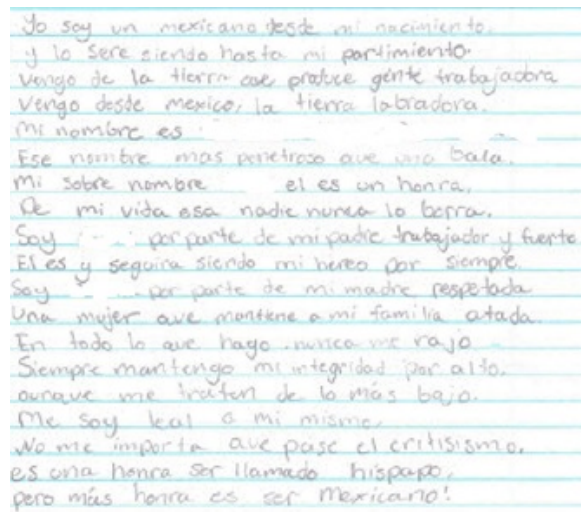 Yo soy un mexicano desde mi nacimiento.
y lo sere siendo hasta mi partimiento.
vengo de la tierra que produce gente trabajadora
Vengo desde mexico, la tierra labradora.
Mi nombre es
Ese nombre mas penetroso que una bala.
Mi sobre nombre el es un honra,
De mi vida esa nadie nunca lo borra.
Soy por parte de mi padre trabajador y fuerte
El es y seguira siendo mi hereo por siempre.
Soy por parte de mi madre respetada
Una mujer que mantiene a mi familia atada.
En todo lo que hago nunca me rajo
Siempre mantengo mi integridad por alto.
aunque me traten de lo más bajo.
Me soy leal a mi mismo,
No me importa que pase el critisismo.
es una honra ser llamado hispano,
pero más honra es ser Mexicano!